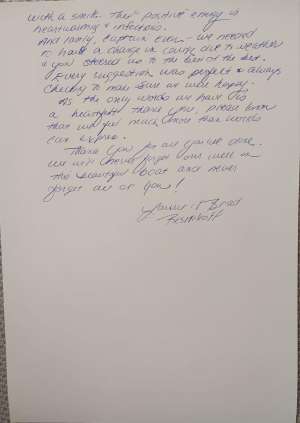 with a smile. Their positive energy is
heartwarming & infectious.
And lastly, Captain - we needed
to have a change in due to weather
& you steered us to the best of the best.
Every suggestion was perfect & always
checking to make sure we were happy.
As the only words we have is
a heartfelt thank you please know
that we feel much more than words
can express.
Thank you for all you've done.
We will never forget our week on
this beautiful boat and never
forget all of you!
& Brad